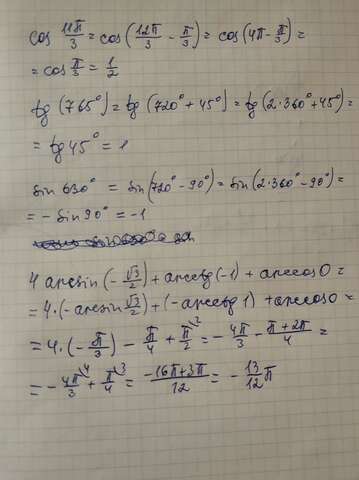 cos 11π/3 = cos(12π/3 - π/3) = cos(4π - π/3) =
= cos π/3 = 1/2
tg(765°) = tg(720° + 45°) = tg(2·360° + 45°) =
= tg 45° = 1
Sin 630° = sin(720° - 90°) = Sin(2·360° - 90°) =
= - Sin 90° = -1
4 arcsin(-√3/2) + arcctg(-1) + arccos 0 =
= 4·(-arcsin √3/2) + (-arcctg 1) + arccos 0 =
= 4·(-π/3) - π/4 + π/2 = -4π/3 - π + 2π/4 =
= -4π/3 + π/4 = -16π + 3π/12 = -13/12 π